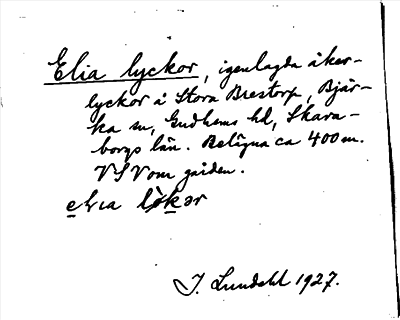 Elia lyckor, igenlagda åker-
lyckor å Stora Brestorp, Bjär-
ka sn, Gudhems hd, Skara-
borgs län. Belägna ca 400 m.
VSV om gården.
elıa lökər
J. Lundahl 1927.